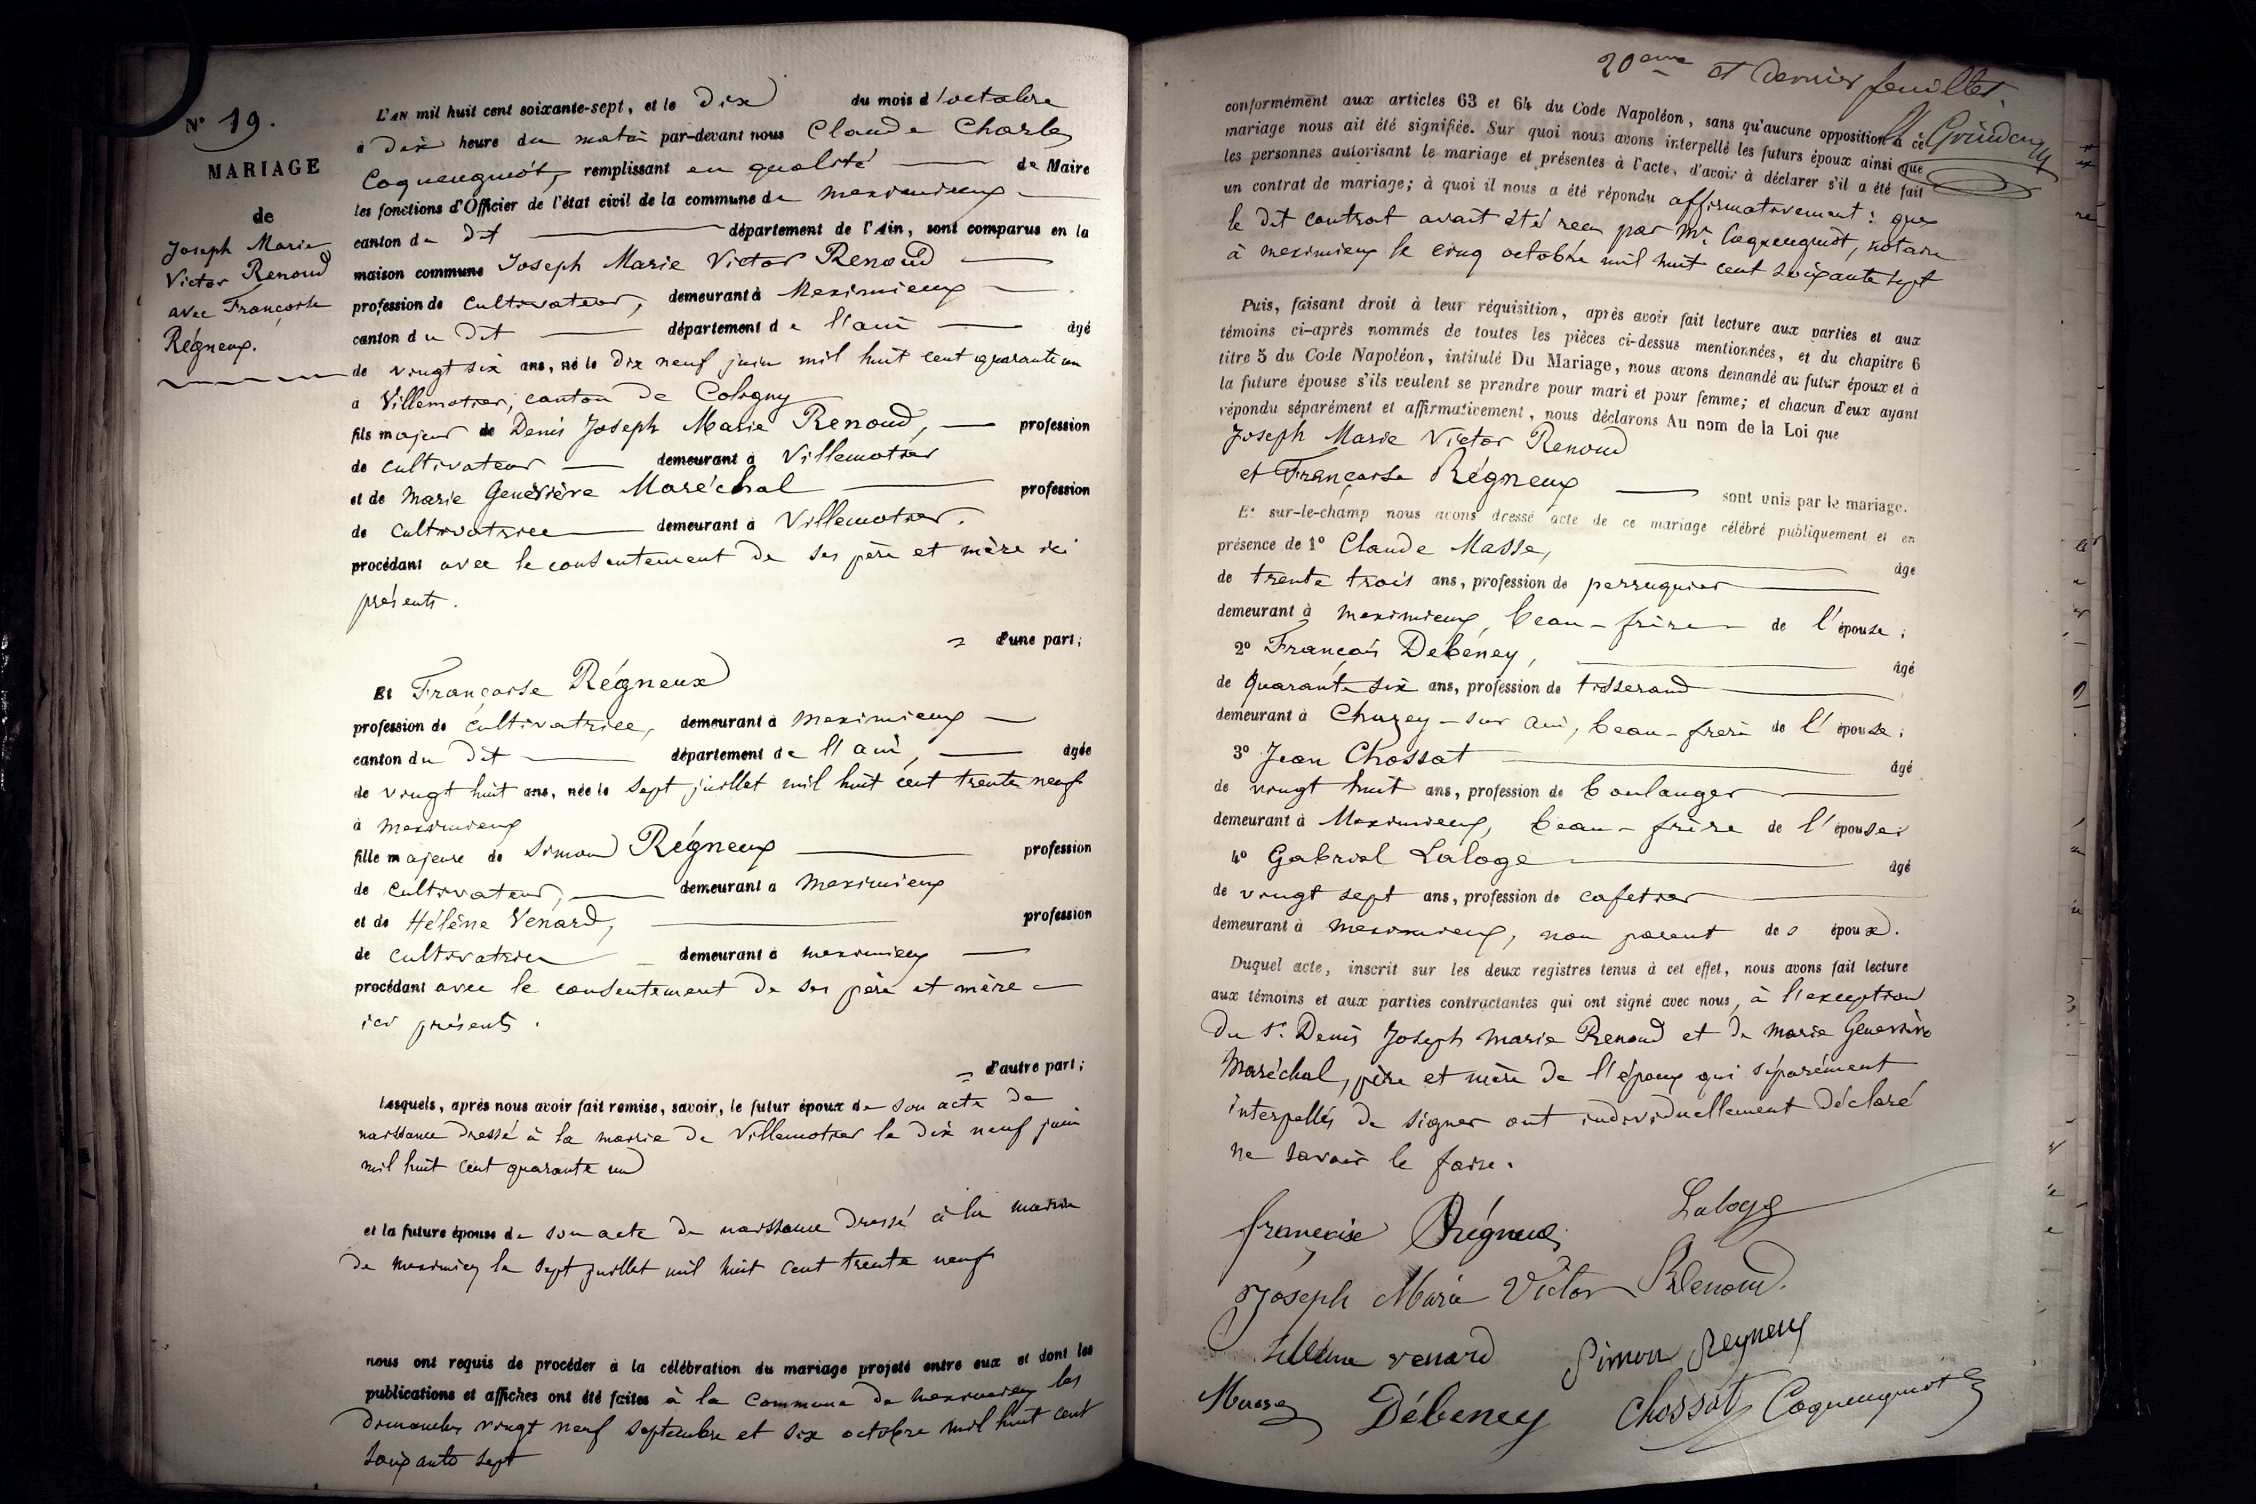 N° 19.
MARIAGE
de
Joseph Marie
Victor Renoud
avec Françoise
Régneux.
L'AN mil huit cent soixante-sept, et le dix du mois d'octobre
à dix heure du matin par-devant nous Claude Charles
Coquenguiot, remplissant en qualité de Maire
les fonctions d'Officier de l'état civil de la commune de meximieux
canton du dit département de l'Ain, sont comparus en la
maison commune Joseph Marie Victor Renoud
profession de cultivateur, demeurant à Meximieux
canton du dit département de l'ain âgé
de vingt six ans, né le dix neuf juin mil huit cent quarante un
à Villemotier, canton de Coligny
fils majeur de Denis Joseph Marie Renoud, profession
de cultivateur demeurant à Villemotier
et de Marie Geneviève Maréchal profession
de cultivatrice demeurant à Villemotier.
procédant avec le consentement de ses père et mère ici
présents.
d'une part;
Et Françoise Régneux
profession de cultivatrice, demeurant à meximieux
canton du dit département de l'ain, âgée
de vingt huit ans, née le sept juillet mil huit cent trente neuf
à meximieux
fille majeure de Simon Régneux profession
de cultivateur, demeurant à meximieux
et de Hélène Venard, profession
de cultivatrice demeurant à meximieux
procédant avec le consentement de ses père et mère
ici présents.
d'autre part;
Lesquels, après nous avoir fait remise, savoir, le futur époux de son acte de
naissance dressé à la mairie de Villemotier le dix neuf juin
mil huit cent quarante un
et la future épouse de son acte de naissance dressé à la mairie
de meximieux le sept juillet mil huit cent trente neuf
nous ont requis de procéder à la célébration du mariage projeté entre eux et dont les
publications et affiches ont été faites à la commune de meximieux les
dimanches vingt neuf septembre et six octobre mil huit cent
soixante sept
20eme et dernier feuillet.
conformément aux articles 63 et 64 du Code Napoléon, sans qu'aucune opposition à ce
mariage nous ait été signifiée. Sur quoi nous avons interpellé les futurs époux ainsi que
les personnes autorisant le mariage et présentes à l'acte, d'avoir à déclarer s'il a été fait
un contrat de mariage; à quoi il nous a été répondu affirmativement: que
le dit contrat avait été reçu par Mr. Coquenguiot, notaire
à meximieux le cinq octobre mil huit cent soixante sept
Puis, faisant droit à leur réquisition, après avoir fait lecture aux parties et aux
témoins ci-après nommés de toutes les pièces ci-dessus mentionnées, et du chapitre 6
titre 5 du Code Napoléon, intitulé Du Mariage, nous avons demandé au futur époux et à
la future épouse s'ils veulent se prendre pour mari et pour femme; et chacun d'eux ayant
répondu séparément et affirmativement, nous déclarons Au nom de la Loi que
Joseph Marie Victor Renoud
et Françoise Régneux sont unis par le mariage.
Et sur-le-champ nous avons dressé acte de ce mariage célébré publiquement et en
présence de 1° Claude Masse, âgé
de trente trois ans, profession de perruquier
demeurant à meximieux, beau-frère de l'épouse;
2° François Debeney, âgé
de quarante six ans, profession de tisserand
demeurant à Chazey-sur ain, beau-frère de l'épouse;
3° Jean Chossat âgé
de vingt huit ans, profession de boulanger
demeurant à Meximieux, beau-frère de l'épouse;
4° Gabriel Laloge âgé
de vingt sept ans, profession de cafetier
demeurant à meximieux, non parent des époux.
Duquel acte, inscrit sur les deux registres tenus à cet effet, nous avons fait lecture
aux témoins et aux parties contractantes qui ont signé avec nous, à l'exception
du sr. Denis Joseph Marie Renoud et de marie Geneviève
Maréchal, père et mère de l'époux qui séparément
interpellés de signer ont individuellement déclaré
ne savoir le faire.
françoise Régneux Laloge
Joseph Marie Victor Renoud.
héléne venard Simon Regneux
Masse Débeney Chossat Coquenguiot